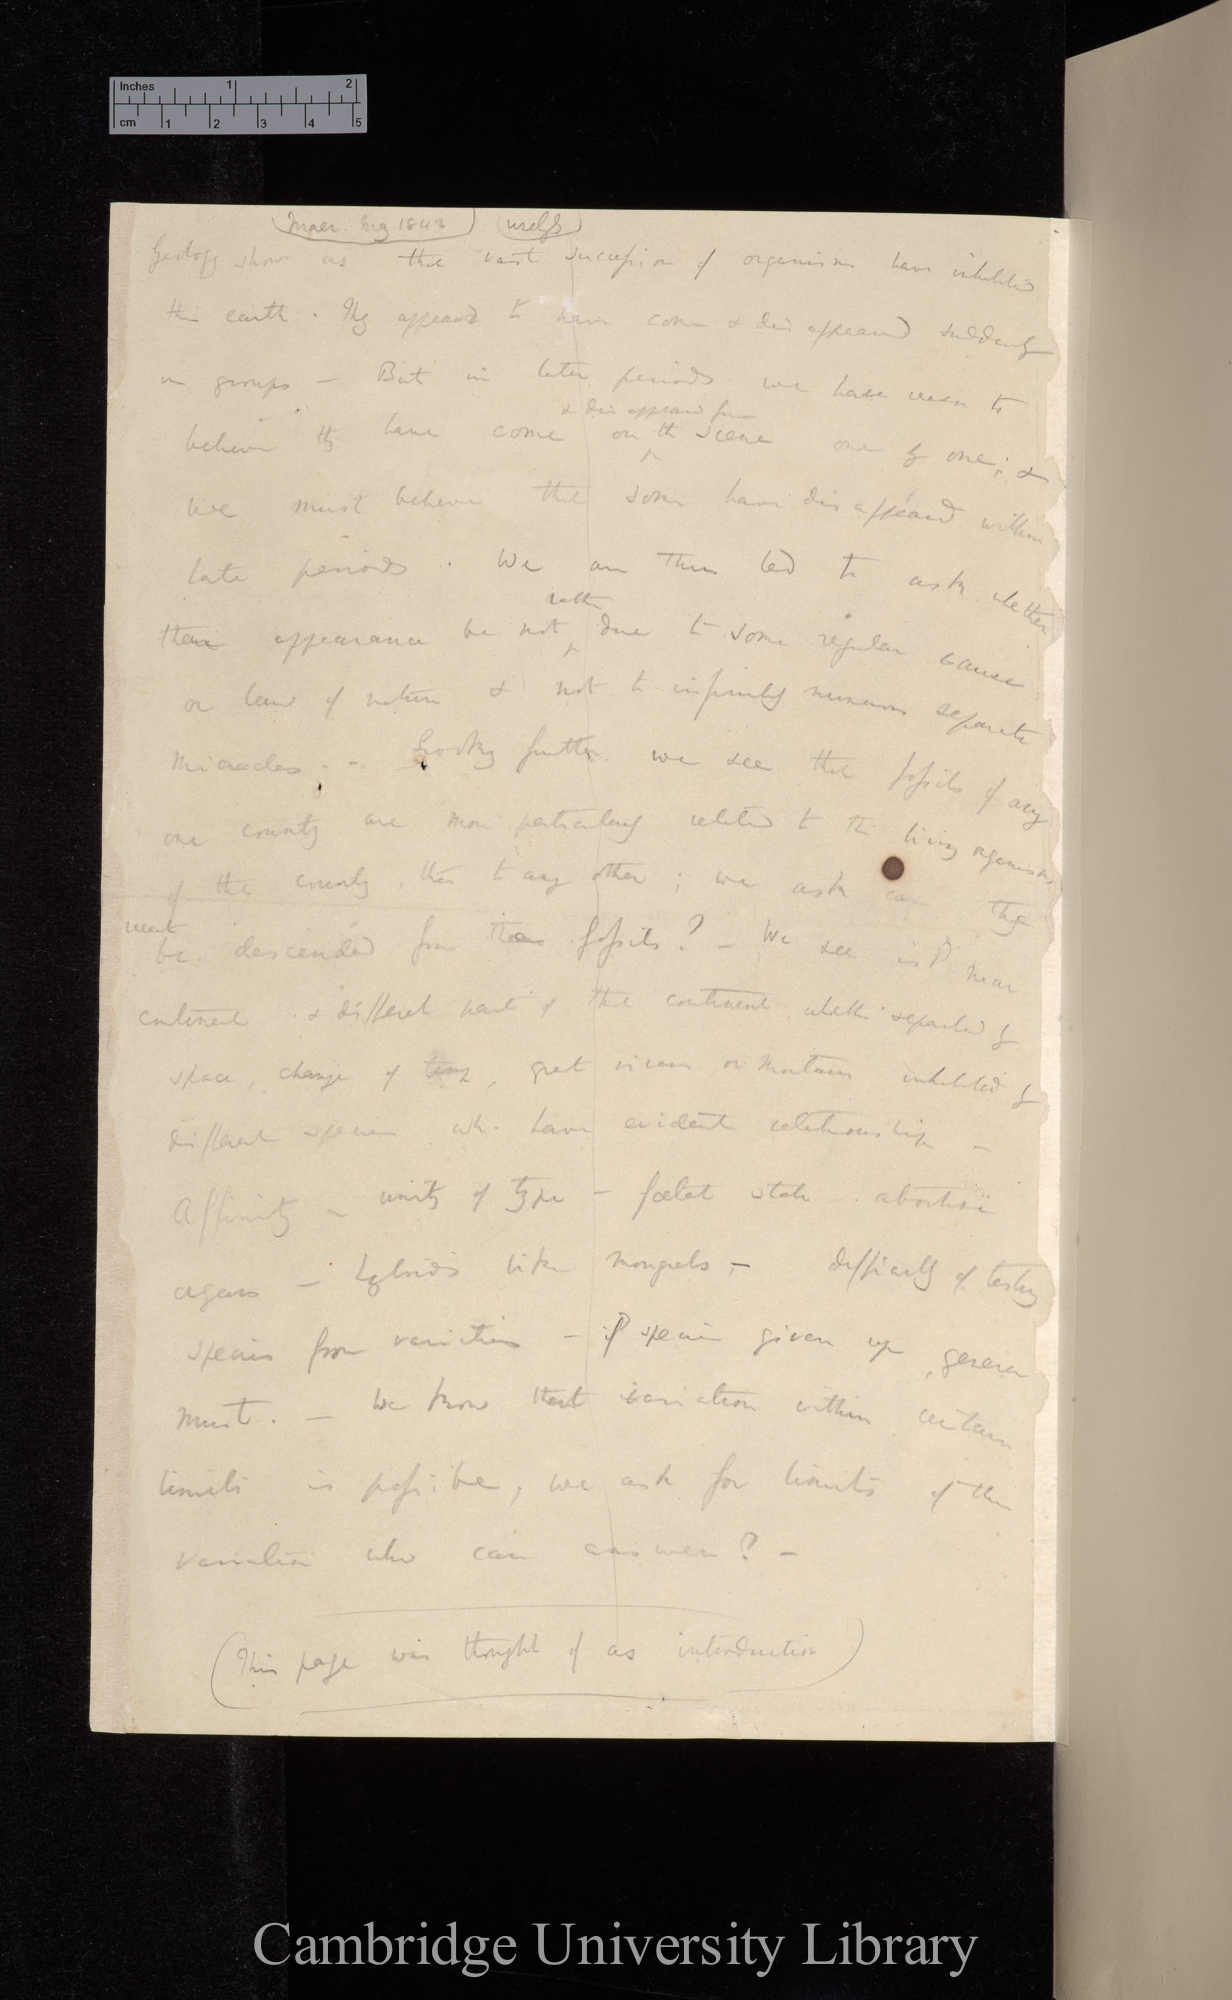 Inches 1 2
cm 1 2 3 4 5
Maer. May 1842 useless
Geology shows us that vast succession of organisms have inhabited
this earth. They appeared to have come & disappeared suddenly
in groups — But in later periods we have reason to
& disappeared from
believe they have come on the scene one by one; &
we must believe that some have disappeared within
late periods. We are thus led to ask whether
rather
their appearance be not due to some regular cause
or law of nature & not to infinitely numerous separate
miracles. — Looking further we see that fossils of any
one country are more particularly related to the living organisms
of that country, than to any other; we ask can they
recent
be descended from these fossils? — We see isd near
continent & different part of the continent, whether separated by
space, change of temp, great rivers or mountains inhabited by
different species wh. have evident relationship —
Affinity — unity of type — foetal state. abortive
organs — hybrids like mongrels — difficulty of testing
species from varieties — if species given up, genera
must. — We know that variation within certain
limits is possible, we ask for limits of this
variation who can answer? —
(This page was thought of as introduction)
Cambridge University Library